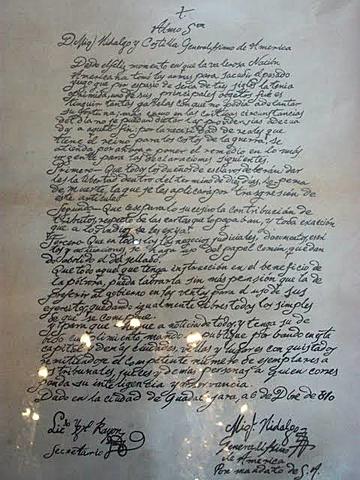 Almo Sor
D. Miğl Hidalgo y Costilla Generalissimo de America
Desde el feliz momento en que la valerosa Nación
America ha tomó las armas para sacudir el pesado
yugo que por espacio de de tres siglos la tenía
oprimida, uno de sus principales objetos fue es
tinguir tantas gabelas con que no podía adelantar
su fortuna; mas como en las criticas circunstancias
del dia no se pueden dictar las providencias adecua
das a aquel fin, por la necesidad de reales que
tiene el reino para los costos de la guerra, se
atienda por ahora a poner el remedio en lo más
urgente para las declaraciones siguientes
Primero= Que todos los dueños de esclavos deberán, dar
les la libertad dentro del término de diez dias, so pena
de muerte, la que se les aplicará por trasgresión de
este artículo.
Segundo= Que cese para lo sucesivo la contribución de
tributos, respeto de las castas que lo pagaban, y toda exacción
que a los indios se les exija
Tercero= Que en todos los negocios judiciales, documentos, escri
turas y actuaciones, se haga uso del papel común quedan
do abolido el del sellado.
Que todo aquel que tenga instrucción en el beneficio de
la pólvora, pueda labrarla sin más pensión que la de
preferir al gobierno en las ventas para el uso de sus
ejercitos, quedando igualmente libres todos los simples
de que se compone.
Y para que llegue a noticia de todos y tenga su de
bido cumplimiento, mando se publique por bando en esta
capital y demás ciudades, villas y lugares conquistados
remitiéndose el competente número de ejemplares a
tribunales, jueces y demás personas a quien corres
ponda su inteligencia y observancia.
Dado en la ciudad de Guadalajara, a 6 de Dbre de 810
Licdo Ygñ Rayon
Secretario
Migl Hidalgo
Generalíssimo
de America
Por mandato de S.A.